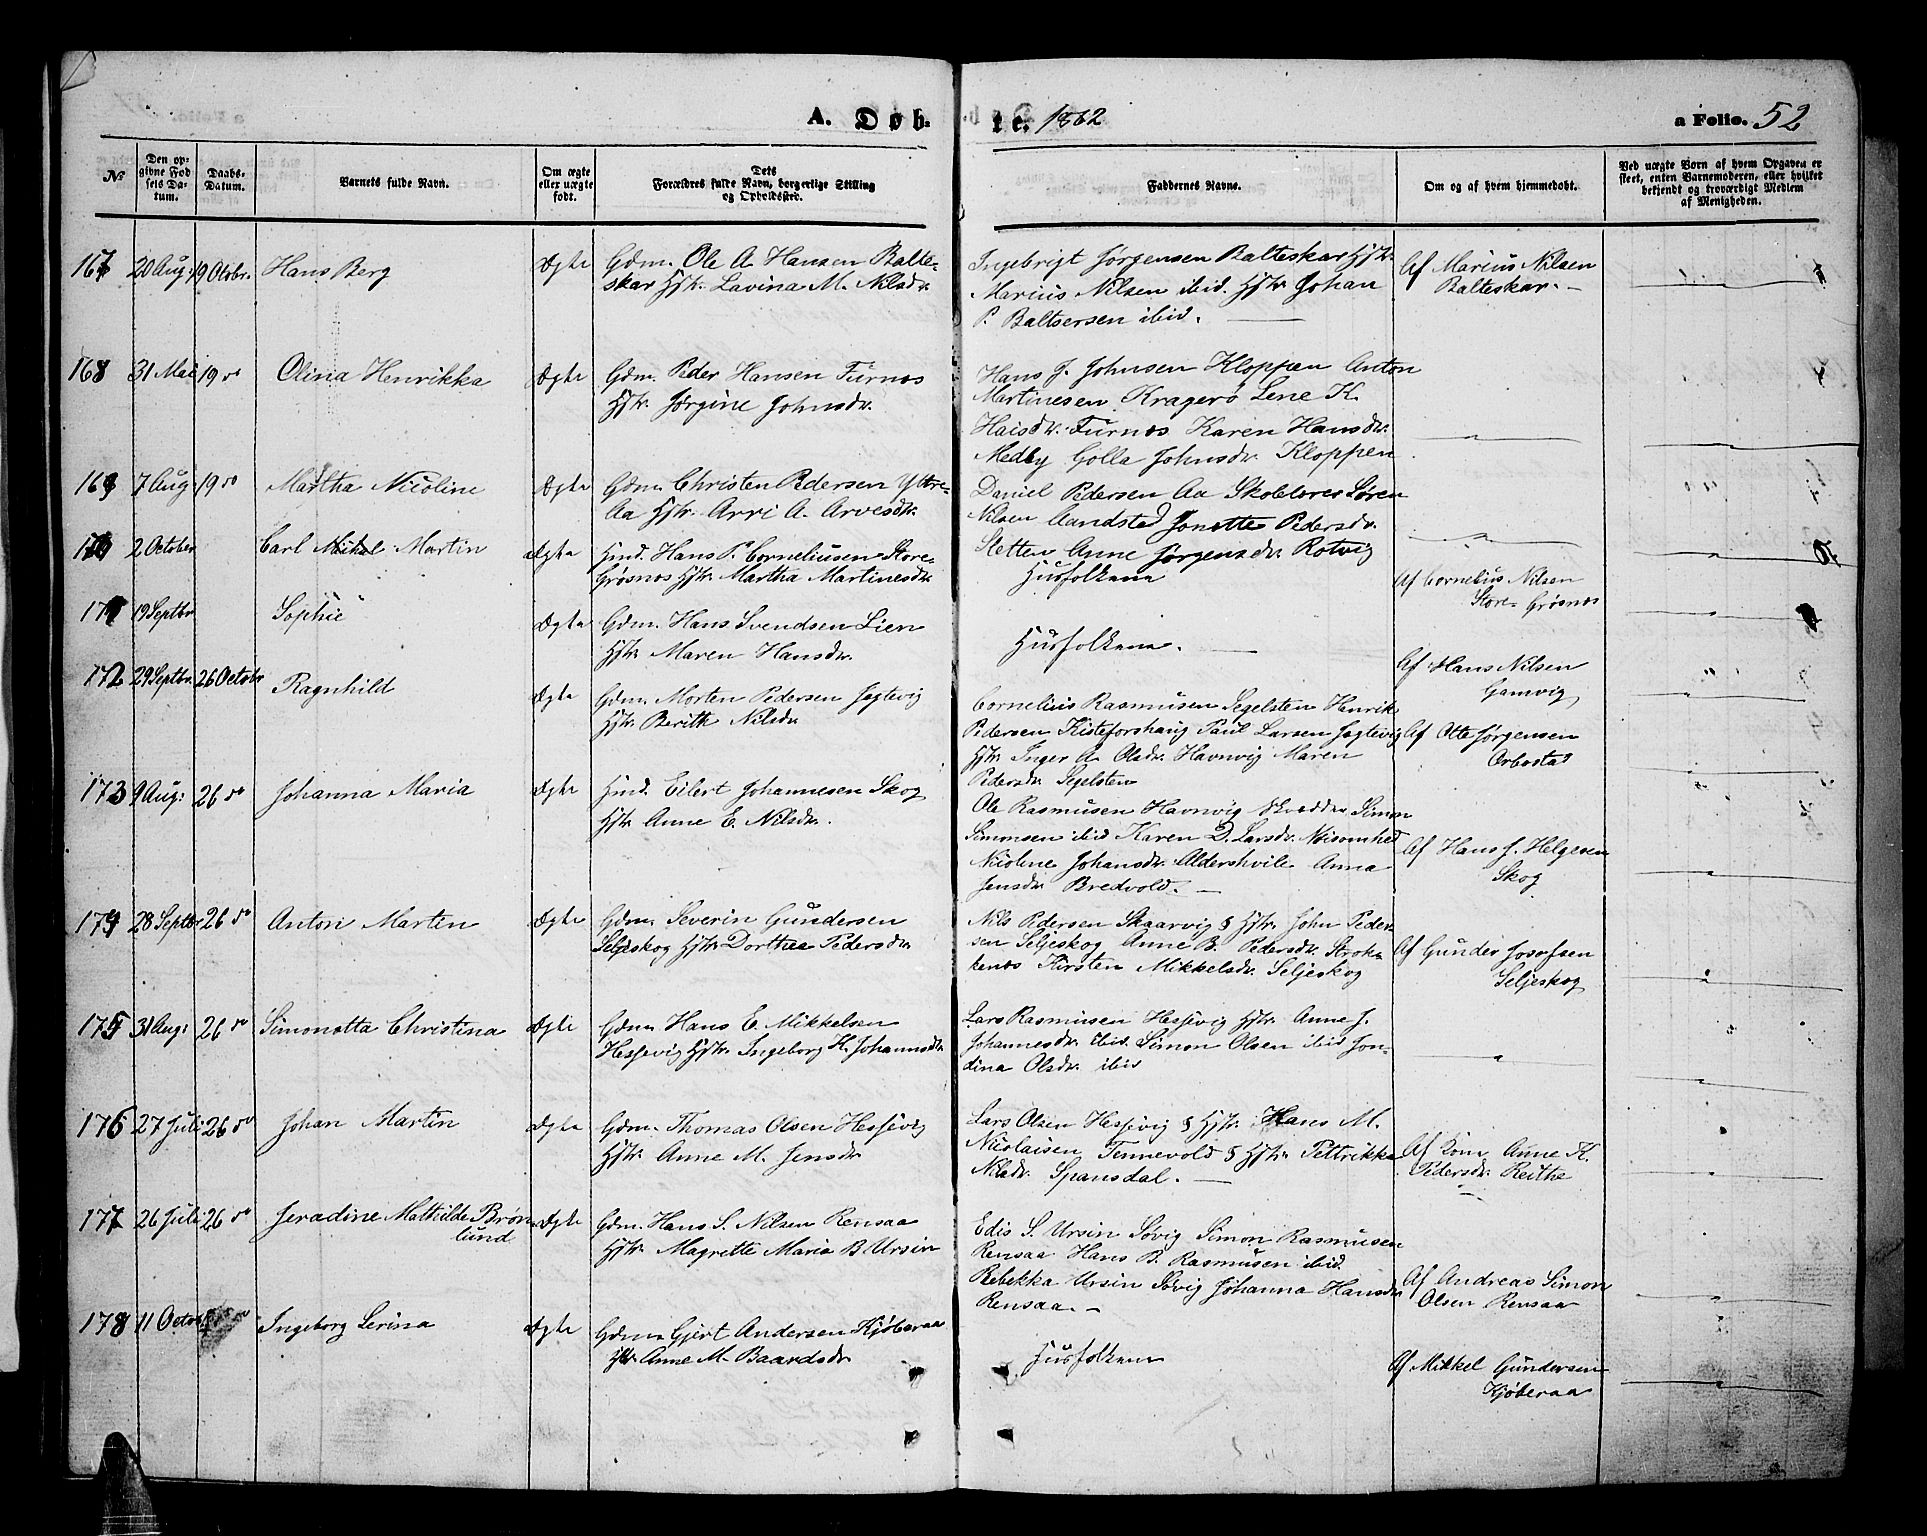 A. Døb-
te. 1862
a Folio. 52
No
Den op-
givne Fød
sels Da-
tum.
Daabs-
Datum.
Barnets fulde Navn.
Om ægte
eller uægte
født.
Dets
Forældres fulde Navn, borgerlige Stilling
og Opholdssted.
Faddernes Navne.
Om og af hvem hjemmedøbt.
Ved uægte Børn af hvem Opgaven er
skeet, enten Barnemoderen, eller hvilket
bekjendt og troværdigt Medlem
af Menigheden.
167 20 Aug: 19 Octobr. Hans Berg Ægte Gdm. Ole A Hansen Balte-
skar Hstr. Lavina M. Nilsdr.
Ingebrigt Jørgensen Balteskar Hstr.
Marius Nilsen ibid. Hstr Johan
P. Baltsersen ibid.
Af Marius Nilsen
Balteskar.
168 31 Mai 19 do Olina Henrikka Ægte Gdm. Peder Hansen Furnes
Hstr. Jørgine Johnsdr.
Hans J. Johnsen Kloppen Anton
Martinesen Kragerø Lene K.
Haisdr. Furnes Karen Hansdr.
Medby Golla Johnsdr. Kloppen
169 7 Aug 19 do Martha Nicoline Ægte Gdm. Christen Pedersen Yttre-
Aa Hstr. Arri A. Arvesdr.
Daniel Pedersen Aa Skolelærer Søren
Nilsen Aandsted Jonette Pedersdr.
Sletten Anne Jørgensdr. Rotvig
170 2 October Carl Mikal Martin Ægte Hmd. Hans P. Corneliusen Store-
Grøsnes Hstr. Martha Martinesdr.
Husfolkene
Af Cornelius Nilsen
Store-Grøsnes
171 19 Septbr Sophie Ægte Gdm. Hans Svendsen Lien
Hstr Maren Hansdr.
Husfolkene.
Af Hans Nilsen
Gamvig
172 29 Septbr. 26 Octobr Ragnhild Ægte Gdm. Morten Pedersen Jagtevig
Hstr. Berith Nilsdr
Cornelius Rasmusen Segelsten Henrik
Pedersen Kisteforshaug Paul Larsen Jagtevig
Hstr Inger A Olsdr. Havnvig Maren
Pedersdr. Segelsten
Af Otte Jørgensen
Orbosta
173 9 Aug: 26 do Johanna Maria Ægte Hmd. Eilert Johannesen Skog
Hstr Anne E. Nilsdr.
Ole Rasmusen Havnvig Skrædder Simon
Simonsen ibid Karen D. Larsdr. Nøisomhed
Nicoline Johansdr. Aldershvile Anna
Jensdr Bredvold.
Af Hans J. Helgesen
Skog
174 28 Septbr 26 do Anton Martin Ægte Gdm. Severin Gundersen
Seljeskog Hstr Dorthea Pedersdr.
Nils Pedersen Skaarvig & Hstr. John Peder-
sen Seljeskog Anne B. Pedersdr. Strok-
kenes Kirsten Mikkelsdr. Seljeskog
Af Gunder Josefsen
Seljeskog
175 31 Aug: 26 do Simonetta Christina Ægte Gdm. Hans E. Mikkelsen
Hesjevig Hstr. Ingeborg H. Johannsdr.
Lars Rasmusen Hesjevig Hstr. Anne J.
Johannesdr. ibid. Simon Olsen ibid Jon-
dina Olsdr. ibid
176 27 Juli 26 do Johan Martin Ægte Gdm. Thomas Olsen Hesjevig
Hstr. Anne M. Jensdr
Lars Olsen Hesjevig & Hstr. Hans M.
Nicolaisen Tennevold & Hstr. Pettrikka
Nilsdr. Spansdal.
Af Kom Anne K.
Pedersdr. Reithe
177 26 Juli 26 do Jeradine Mathilde Brøn-
lund Ægte Gdm. Hans S. Nilsen Rensaa
Hstr. Magrette Maria B Ursin
Edis S. Ursin Søvig Simon Rasmusen
Rensaa Hans B. Rasmusen ibid.
Rebekka Ursin Søvig Johanna Hansdr
Rensaa.
Af Andreas Simon
Olsen Rensaa
178 11 Octob. Ingeborg Lerina Ægte Gdm. Gjert Andersen Kjøberaa
Hstr Anne M. Baardsdr
Husfolkene
Af Mikkel Gundersen
Kjøberaa